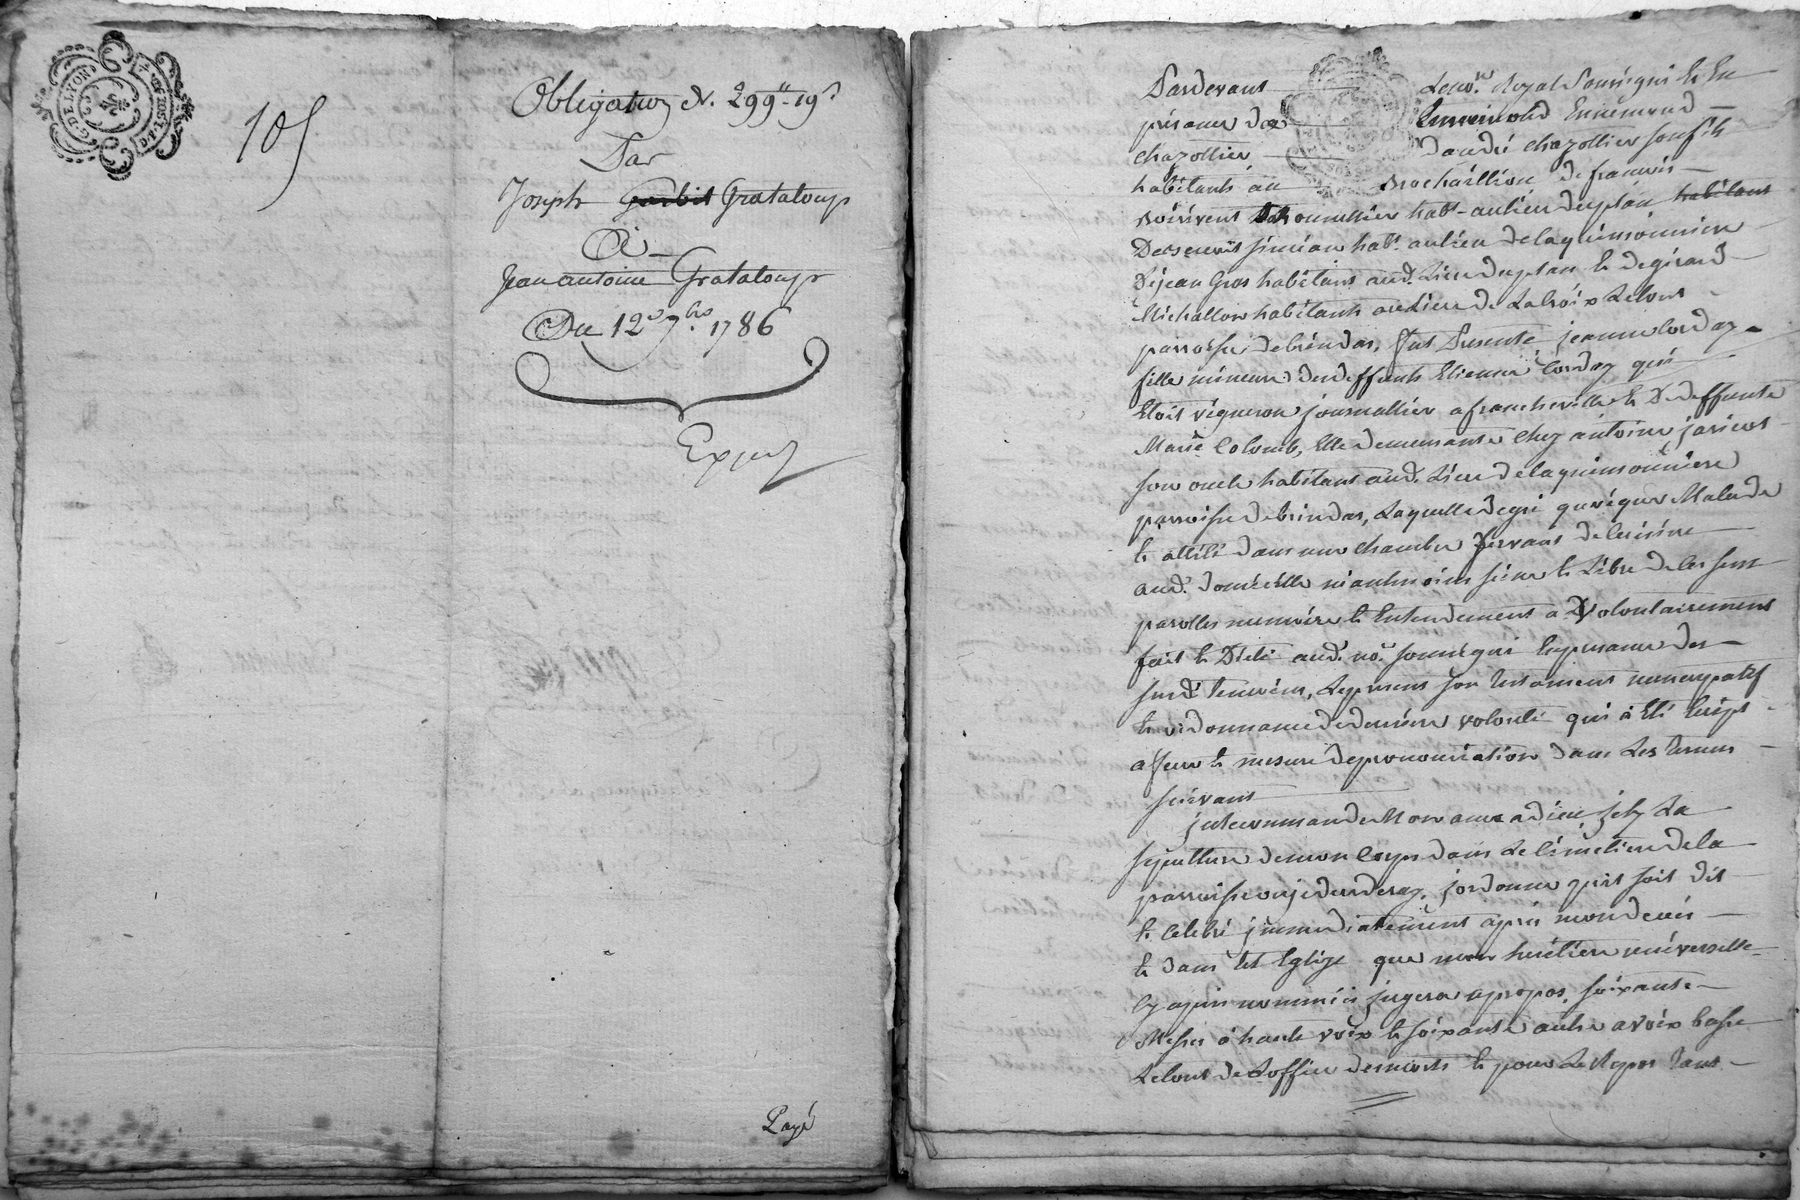 G. DE LYON
105
Obligation de 299tt 19s
Par
Joseph Grataloup
à
Jean antoine Grataloup
Du 12e 9bre 1786
Exped
Payé
Pardevant Le no.re Royal soussigné et En
présence de Ennemond
chazottier D'andré chazottier son fils
habitants au de francois
hab.t au lieu duplan habitant
hab.t au lieu de laguinsonniere
De jean Gros habitant aud. Lieu duplan et de gérard
Michallon habitants au Lieu de Lacroix Letout
parroisse de brindas, fut Presente jeanne Corday
fille mineure des deffunts Etienne Corday qui
Etoit vigneron journallier a francheville et De deffunte
Marie Colomb, Elle demeurante chez antoine jaricot
son oncle habitant aud. Lieu de laguinsonniere
parroisse de brindas, Laquelle de gré quoique Malade
et alitée dans une chambre servant de cuisine
aud. domicille néantmoins saine et Libre de ses sens
parolles memoire et Entendement a Volontairement
fait et Dicté aud. no.re soussigné En presence des
susd. temoins, Le present son testament noncupatif
et ordonnance de derniere volonté qui à Eté Ecript
a feur et mesure de prononciation dans Les termes
suivants
je recommande Mon ame a dieu j'elis La
sepulture de mon Corps dans Le cimetiere de la
parroisse ou je decederay, j'ordonne qu'il soit dit
et Celebré immediatement après mon decès
et dans tel Eglise que mon heritiere universelle
cy après nommée jugera apropos, soixante
Messes à haute voix et soixante autre a voix basse
Letout de Loffice des morts et pour Le Repos tant